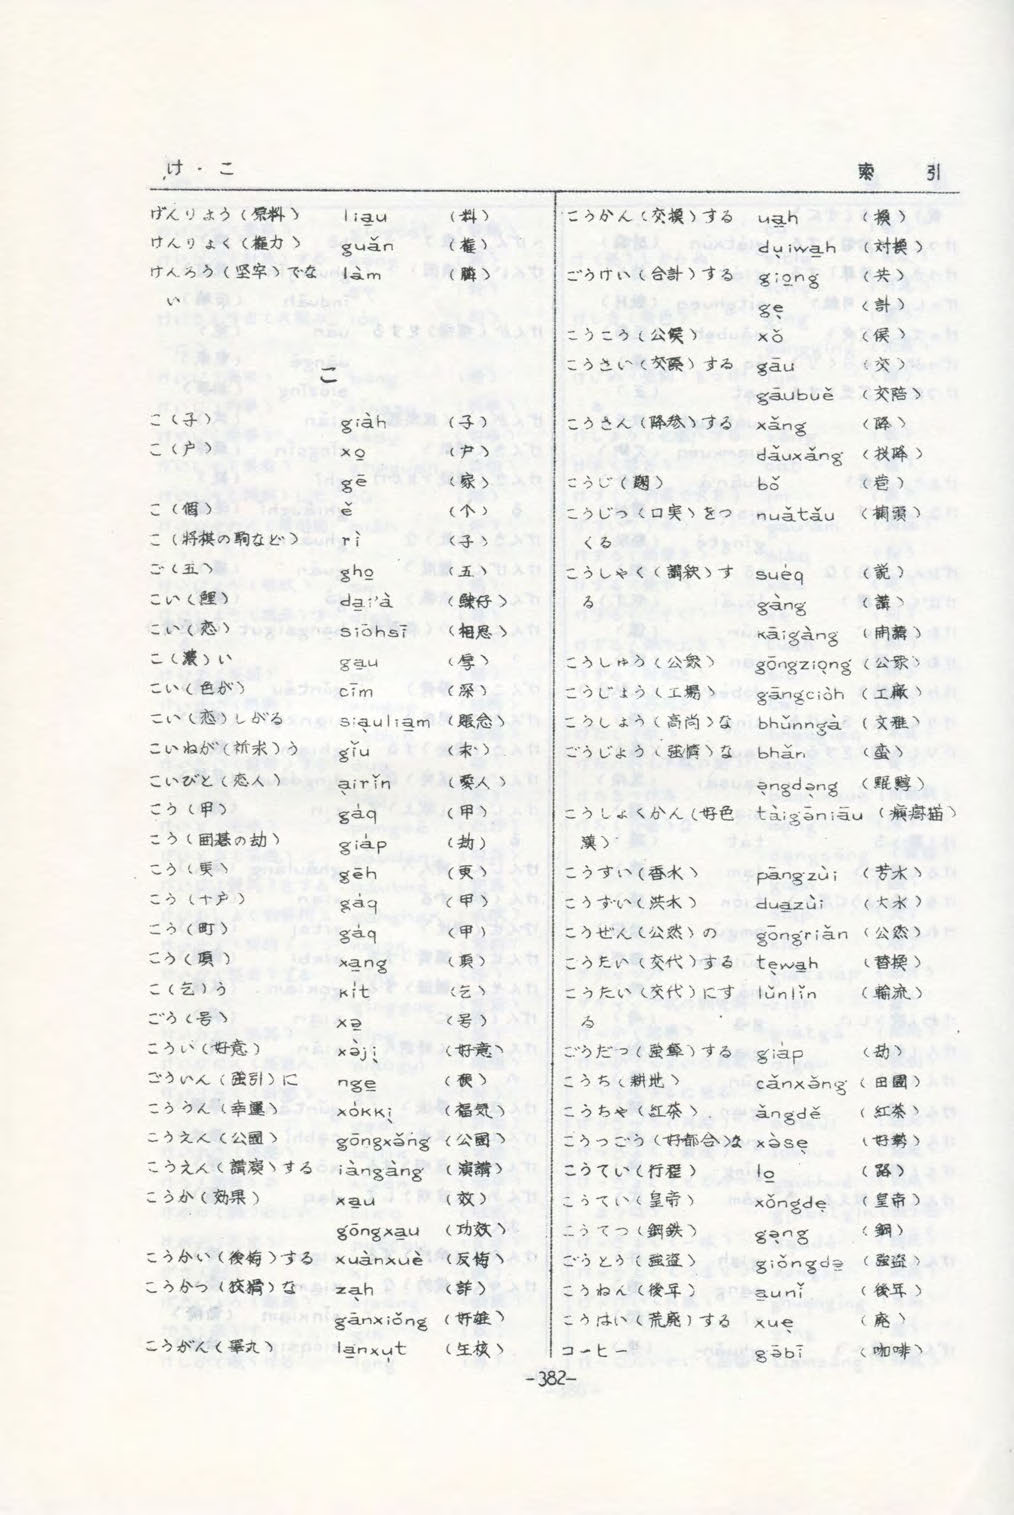 け・こ
索引
げんりょう(原料) lia̱u (料)
けんりょく(権力) guǎn (權)
けんろう(堅牢)でな làm
い
こ
こ(子) giàh (子)
こ(戸) xo̱ (戸)
gē (家)
こ(個) ě (个)
こ(将棋の駒など) rì (子)
ご(五) gho̱ (五)
こい(鯉) da̱i'à
こい(恋) siōhsī (相思)
こ(濃)い ga̱u (厚)
こい(色が) cīm (深)
こい(恋)しがる siạulia̱m
こいねが(祈求)う gǐu (求)
こいびと(恋人) ạirǐn (愛人)
こう(甲) gáq (甲)
こう(囲碁の劫) giáp (劫)
こう(更) gēh (更)
こう(十戸) gáq (甲)
こう(町) gáq (甲)
こう(項) xa̱ng (項)
こ(乞)う kít (乞)
ごう(号) xə̱ (号)
こうい(好意) xə̀jị (好意)
ごういん(強引)に nge̱ (硬)
こううん(幸運) xókkị (福気)
こうえん(公園) gōngxə̌ng (公園)
こうえん(講演)する iàngàng (演講)
こうか(効果) xa̱u (效)
gōngxa̱u (功效)
こうかい(後悔)する xuànxuè (反悔)
こうかつ(狡猾)な zạh (詐)
gānxiǒng (奸雄)
こうがん(睾丸) la̱nxụt (生核)
こうかん(交換)する ua̱h (換)
dụiwa̱h (対換)
ごうけい(合計)する gio̱ng (共)
gẹ (計)
こうこう(公侯) xǒ (侯)
こうさい(交際)する gāu (交)
gāubuě (交陪)
こうさん(降参)する xǎng (降)
dǎuxǎng (投降)
こうじ(麹) bǒ
こうじつ(口実)をつ nuǎtǎu
くる
こうしゃく(講釈)す suéq (説)
る gàng (講)
kāigàng (開講)
こうしゅう(公衆) gōngziọng (公衆)
こうじょう(工場) gāngciòh (工廠)
こうしょう(高尚)な bhǔnngà (文雅)
ごうじょう(強情)な bhǎn (蛮)
ə̣ngdə̣ng
こうしょくかん(好色 tàigōniāu
漢)
こうすい(香水) pāngzùi (芳水)
こうずい(洪水) dua̱zùi (大水)
こうぜん(公然)の gōngriǎn (公然)
こうたい(交代)する tẹwa̱h (替換)
こうたい(交代)にす lǔnlǐn (輪流)
る
ごうだつ(強奪)する giáp (劫)
こうち(耕地) cǎnxə̌ng (田園)
こうちゃ(紅茶) ǎngdě (紅茶)
こうつごう(好都合)な xə̀sẹ (好勢)
こうてい(行程) lo̱ (路)
こうてい(皇帝) xǒngdẹ (皇帝)
こうてつ(鋼鉄) gə̣ng (鋼)
ごうとう(強盗) giǒngdə̱ (強盗)
こうねん(後年) a̱unǐ (後年)
こうはい(荒廃)する xuẹ (廃)
コーヒー gābī (咖啡)
-382-